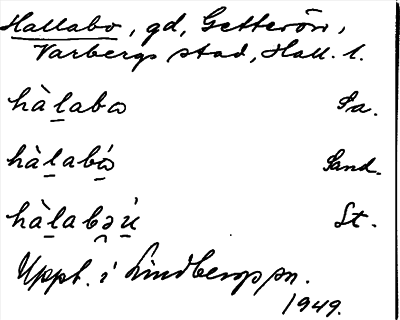 Hallabo, gd, Getterön,
Varbergs stad, Hall. l.
hàḻabo Sa.
hàḻabó̱ Sand.
hàḻabə̯ú̱ St.
Uppt. i Lindberg pn.
1949.